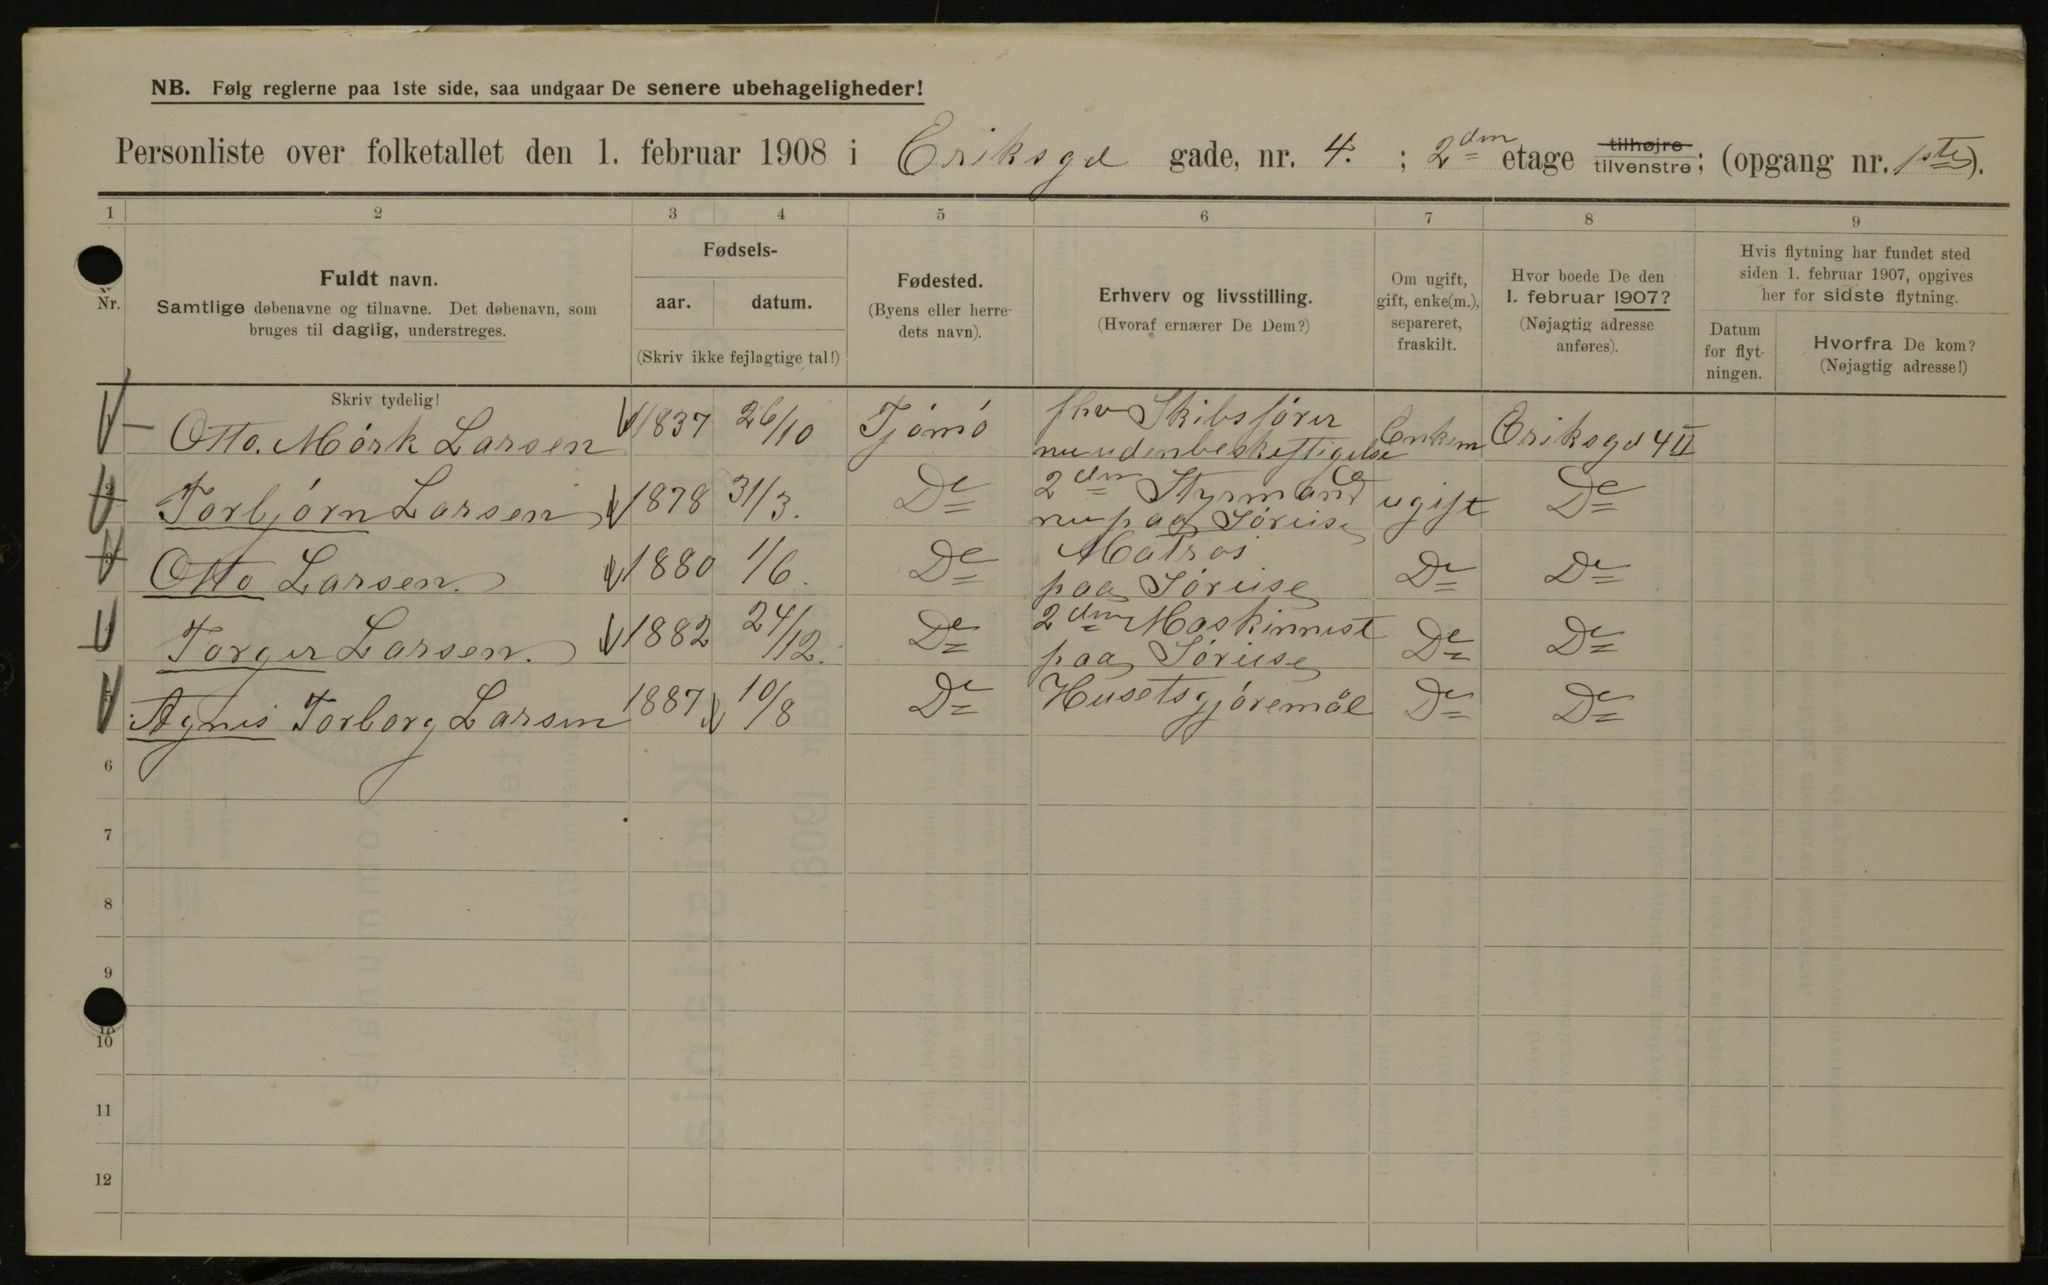 NB. Følg reglerne paa 1ste side, saa undgaar De senere ubehageligheder!
Personliste over folketallet den 1. februar 1908 i Eriksgd gade, nr. 4. ; 2den etage tilhøjre tilvenstre; (opgang nr. 1ste).
1 2 3 4 5 6 7 8 9
Nr.
Fuldt navn.
Samtlige døbenavne og tilnavne. Det døbenavn, som
bruges til daglig, understreges.
Fødsels-
aar. datum.
(Skriv ikke fejlagtige tal!)
Fødested.
(Byens eller herre-
dets navn).
Erhverv og livsstilling.
(Hvoraf ernærer De Dem?)
Om ugift,
gift, enke(m.),
separeret,
fraskilt.
Hvor boede De den
1. februar 1907?
(Nøjagtig adresse
anføres).
Hvis flytning har fundet sted
siden 1. februar 1907, opgives
her for sidste flytning.
Datum
for flyt-
ningen.
Hvorfra De kom?
(Nøjagtig adresse!)
Skriv tydelig!
Otto. Mörk Larsen 1837 26/10 Tjömö fhv Skibsförer Enkem Eriksgd 4 II
nu uden beskeftigelse
Torbjörn Larsen 1878 31/3. De 2den Styrmand ugift De
nu paa Söreise
Otto Larsen. 1880 1/6. De Matros De De
paa Söreise
Torger Larsen. 1882 24/12. De 2den Maskinnist De De
paa Söreise
Agnes Torborg Larsen 1887 10/8 De Husets gjöremål De De
6
7
8
9
10
11
12